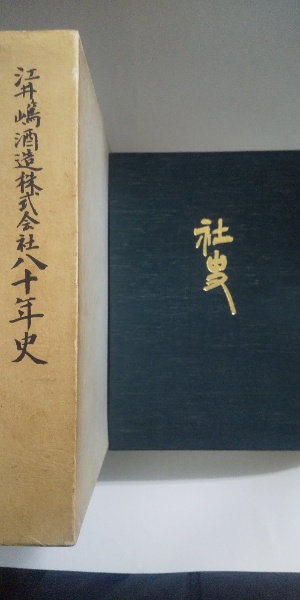 江井嶋酒造株式会社八十年史
社史